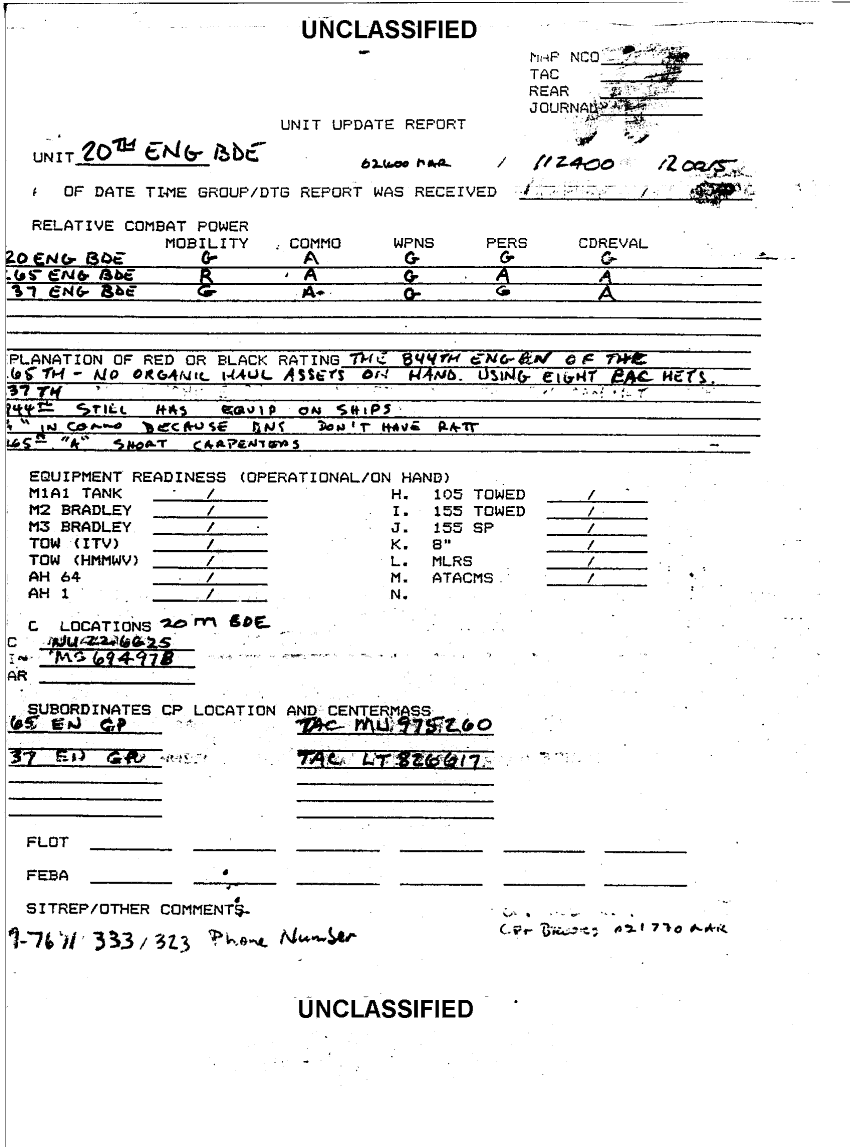 UNCLASSIFIED
MAP NCO
TAC
REAR
JOURNAL
UNIT UPDATE REPORT
UNIT 20TH ENG BDE
02400 MAR / 112400 120015
OF DATE TIME GROUP/DTG REPORT WAS RECEIVED / /
RELATIVE COMBAT POWER
MOBILITY COMMO WPNS PERS CDREVAL
20 ENG BDE G A G G G
65 ENG BDE R A G A A
37 ENG BDE G A G G A
PLANATION OF RED OR BLACK RATING THE 844TH ENG BN OF THE
65TH - NO ORGANIC HAUL ASSETS ON HAND. USING EIGHT EAC HETS.
37TH
244TH STILL HAS EQUIP ON SHIPS
" IN COMMO BECAUSE BNS DON'T HAVE RATT
65TH "A" SHORT CARPENTERS
EQUIPMENT READINESS (OPERATIONAL/ON HAND)
M1A1 TANK / H. 105 TOWED /
M2 BRADLEY / I. 155 TOWED /
M3 BRADLEY / J. 155 SP /
TOW (ITV) / K. 8" /
TOW (HMMWV) / L. MLRS /
AH 64 / M. ATACMS /
AH 1 / N.
C LOCATIONS 20TH BDE
C NU 226625
IN MS 694978
AR
SUBORDINATES CP LOCATION AND CENTERMASS
65 EN GP TAC MU 975260
37 EN GP TAC LT 826617
FLOT
FEBA
SITREP/OTHER COMMENTS
333/323 Phone Number
CPT 021770 MAR
UNCLASSIFIED